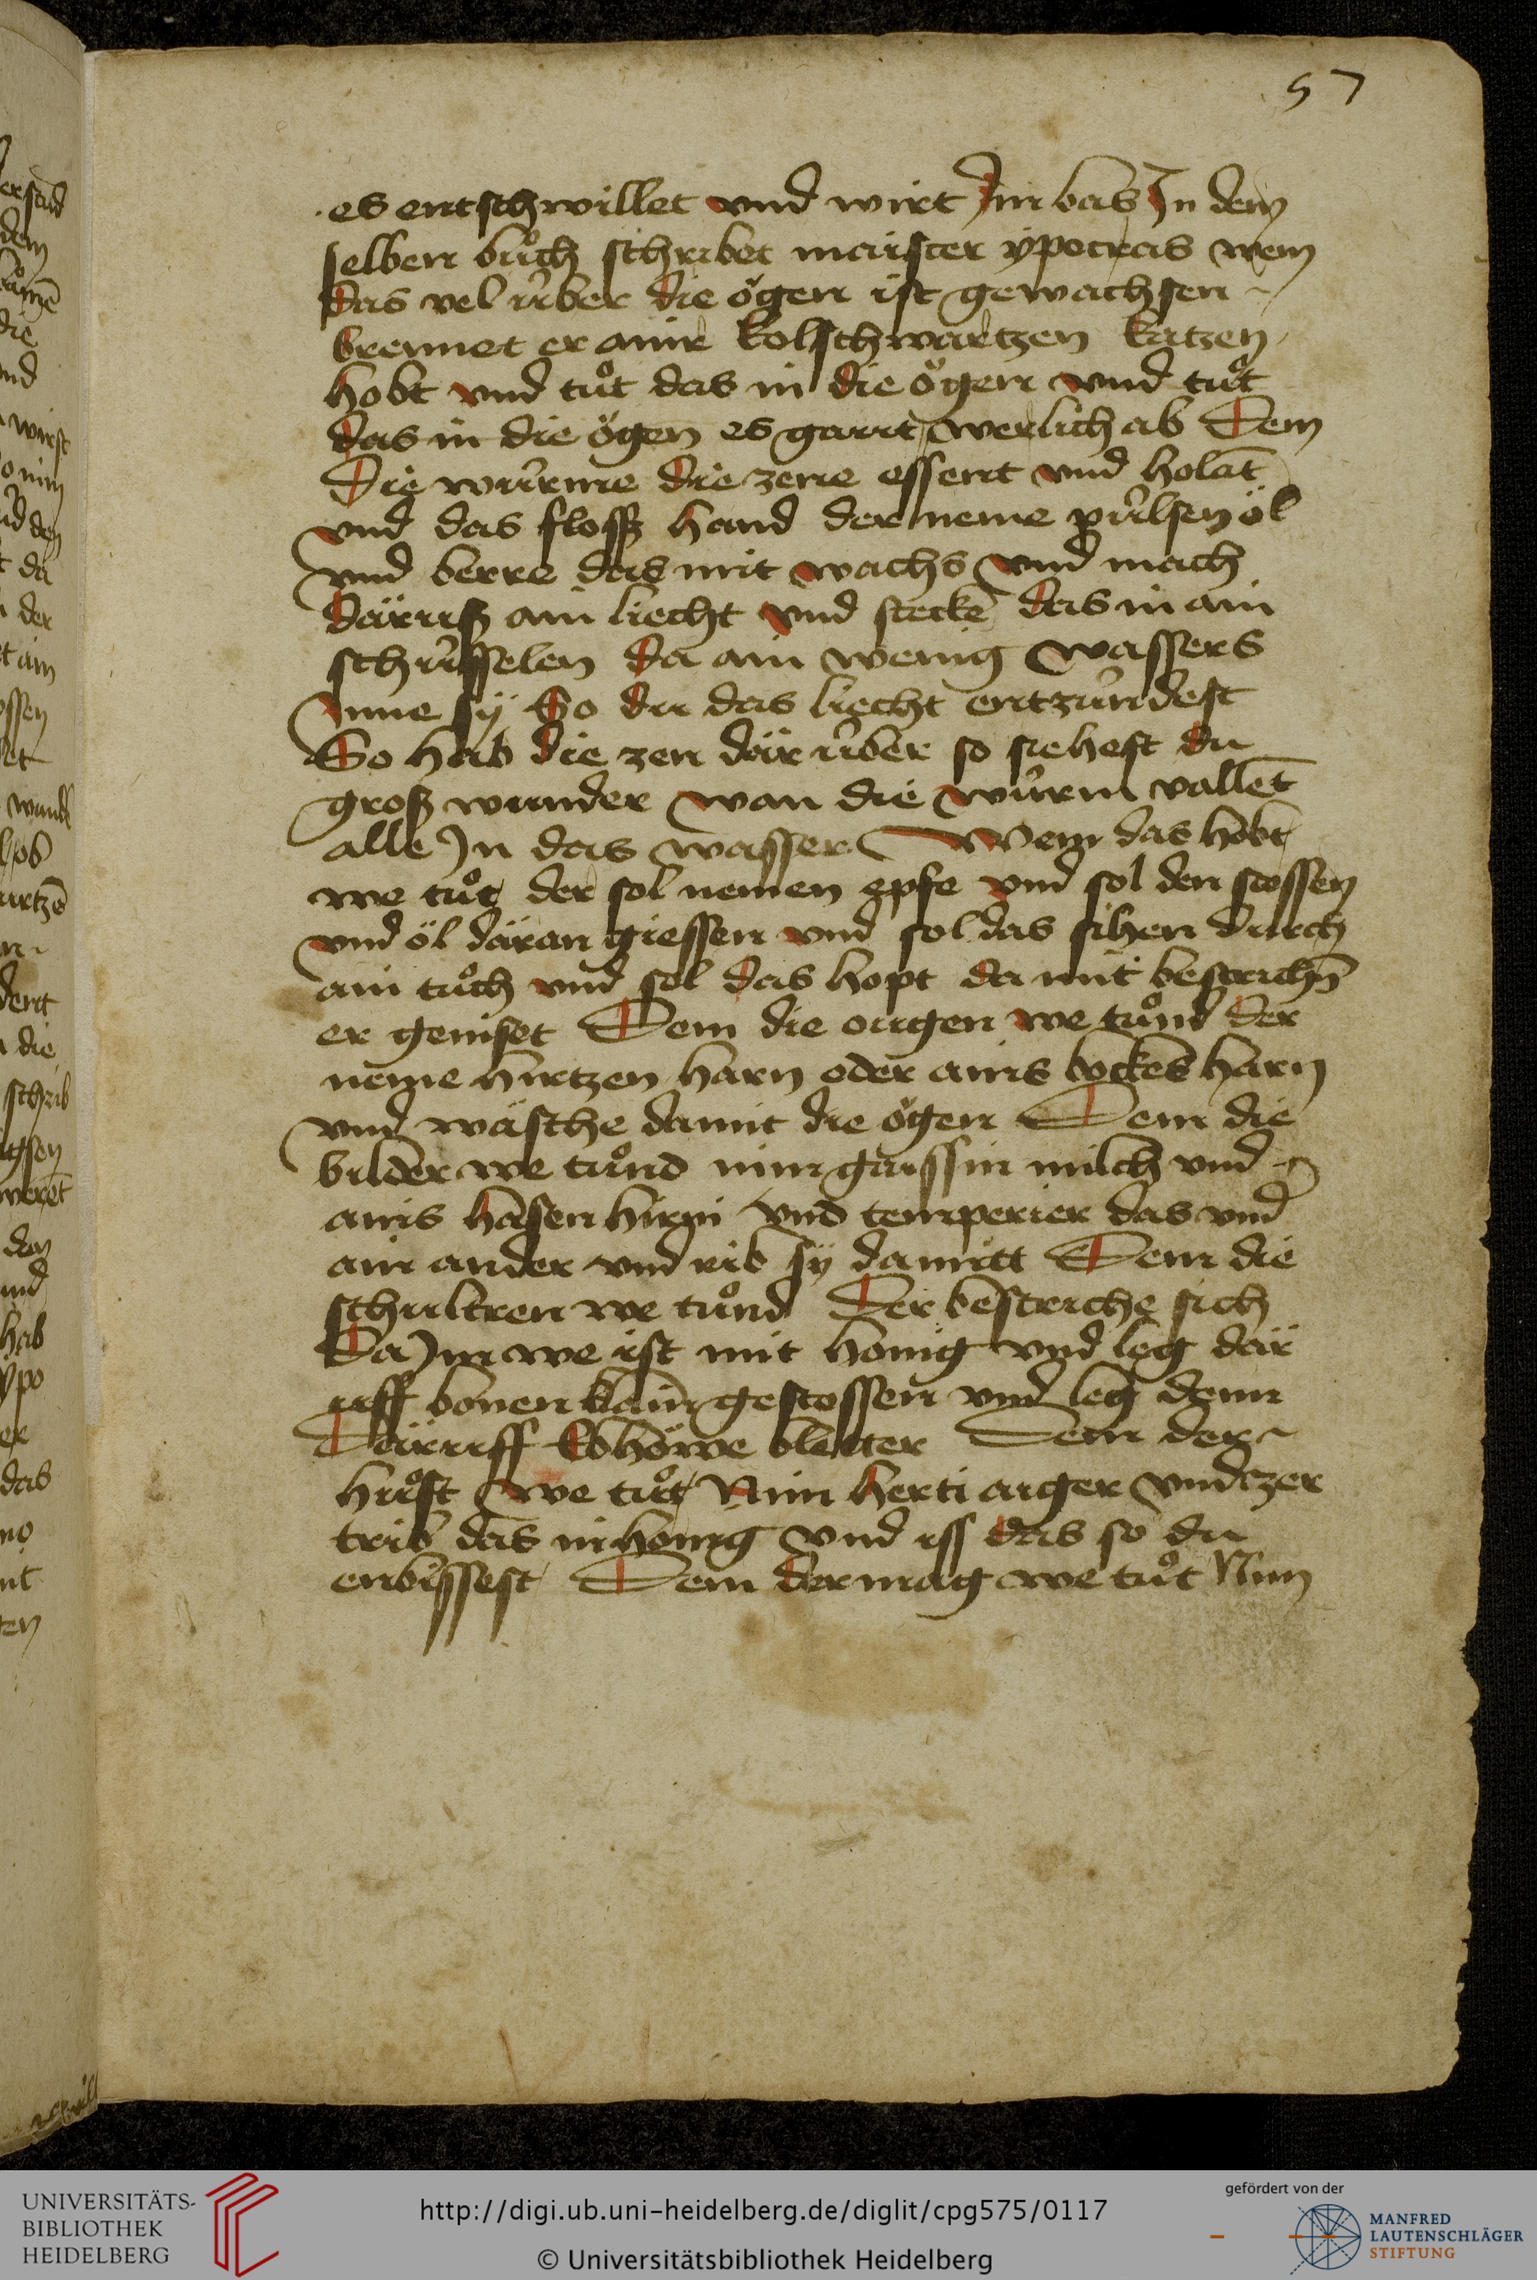 57
es entschwillet vnd wirt Im bas In dem
selben buͦch schribet maister ypocras wem
das vel uͤber die oͤgen ist gewachsen
brennet er ainr kolschwartzen katzen
hobt vnd tuͦt das in die oͤgen vnd tuͦt
das in die oͤgen es garit werlich ab Dem
Die wuͤrme die zene essent vnd holēt
vnd das flosß hand der neme puͤlsen oͤl
vnd berre das mit wachs vnd mach
därusß ain liecht vnd steckē das in ain
schuͤsselen da ain wenig wassers
Inne sÿ So du das liecht entzuͤndest
So hab die zen där uͤber so siehest du
groß wunder wan die wuͤrm vallēt
alle In das wasser Wem das hobt
we tuͦt der sol nemen epfe vnd sol den stossen
vnd öl däran giessen vnd sol das sihen durch
ain tuͦch vnd sol das hopt da mit bestrichn̄
er geniset Dem die ougen we tuͦnd der
neme hirtzen harn oder ains bockes harn
vnd wäsche damit die oͤgen Dem die
bilder we tuͦnd nim gaissin milch vnd
ains hasen hirni vnd temperier das vnd
ain ander vnd rib sÿ damitt Dem die
schultren we tuͦnd Der bestriche sich
Da Im we ist mit honig vnd leg där
uff bonen klain gestossen vnd leg denn
Däruff Ebhöwe bletter Dem der
huͦst we tuͦt Nim herti aiger vnd zer
trib das in honig vnd iss das so du
enbissest Dem der mag we tuͦt Nim
UNIVERSITÄTS-
BIBLIOTHEK
HEIDELBERG
http://digi.ub.uni-heidelberg.de/diglit/cpg575/0117
© Universitätsbibliothek Heidelberg
gefördert von der
MANFRED
LAUTENSCHLÄGER
STIFTUNG